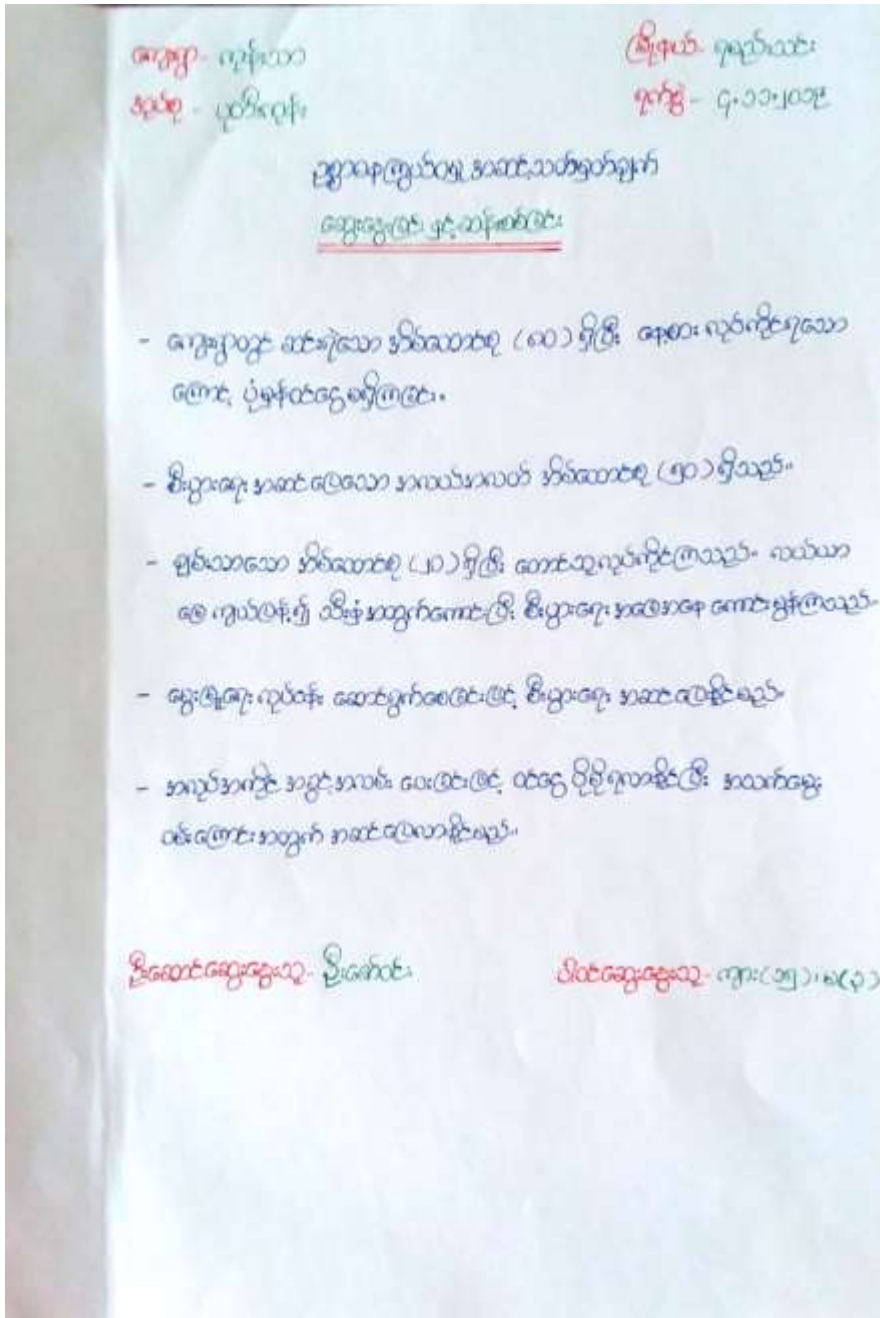 ကျေးရွာ - ကုန်းသာ မြို့နယ် - ရမည်းသင်း
အုပ်စု - ပုတီးကုန်း ရက်စွဲ - ၄.၁၁.၂၀၁၉
ဥစ္စာဓနကြွယ်ဝမှု အဆင့်သတ်မှတ်ချက်
ဆွေးနွေးခြင်း နှင့် ဆန်းစစ်ခြင်း
- ကျေးရွာတွင် ဆင်းရဲသော အိမ်ထောင်စု (၈၀) ရှိပြီး နေ့စား လုပ်ကိုင်ရသော
ကြောင့် ပုံမှန်ဝင်ငွေ မရှိကြခြင်း။
- စီးပွားရေး အဆင်ပြေသော အလယ်အလတ် အိမ်ထောင်စု (၅၀) ရှိသည်။
- ချမ်းသာသော အိမ်ထောင်စု (၂၀) ရှိပြီး တောင်သူလုပ်ကိုင်ကြသည်။ လယ်ယာ
မြေ ကျယ်ပြန့်၍ သီးနှံအထွက်ကောင်းပြီး စီးပွားရေး အခြေအနေ ကောင်းမွန်ကြသည်။
- မွေးမြူရေး လုပ်ငန်း ဆောင်ရွက်စေခြင်းဖြင့် စီးပွားရေး အဆင်ပြေနိုင်မည်။
- အလုပ်အကိုင် အခွင့်အလမ်း ပေးခြင်းဖြင့် ဝင်ငွေ ပိုမိုရလာနိုင်ပြီး အသက်မွေး
ဝမ်းကြောင်းအတွက် အဆင်ပြေလာနိုင်မည်။
ဦးဆောင်ဆွေးနွေးသူ - ဦးဇော်ဝင်း ပါဝင်ဆွေးနွေးသူ - ကျား(၁၅)၊ မ(၃)